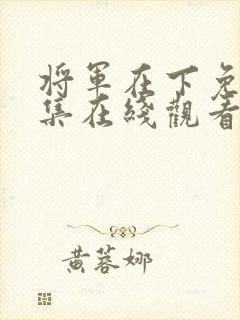 將軍在下免
集在綫觀看
黃蓉娜